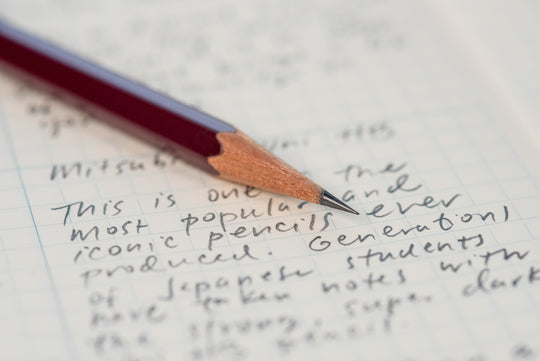 Mitsub uni HB
This is one the
most popular and
iconic pencils ever
produced. Generations
of Japanese students
have taken notes with
the strong, super dark
pencil.